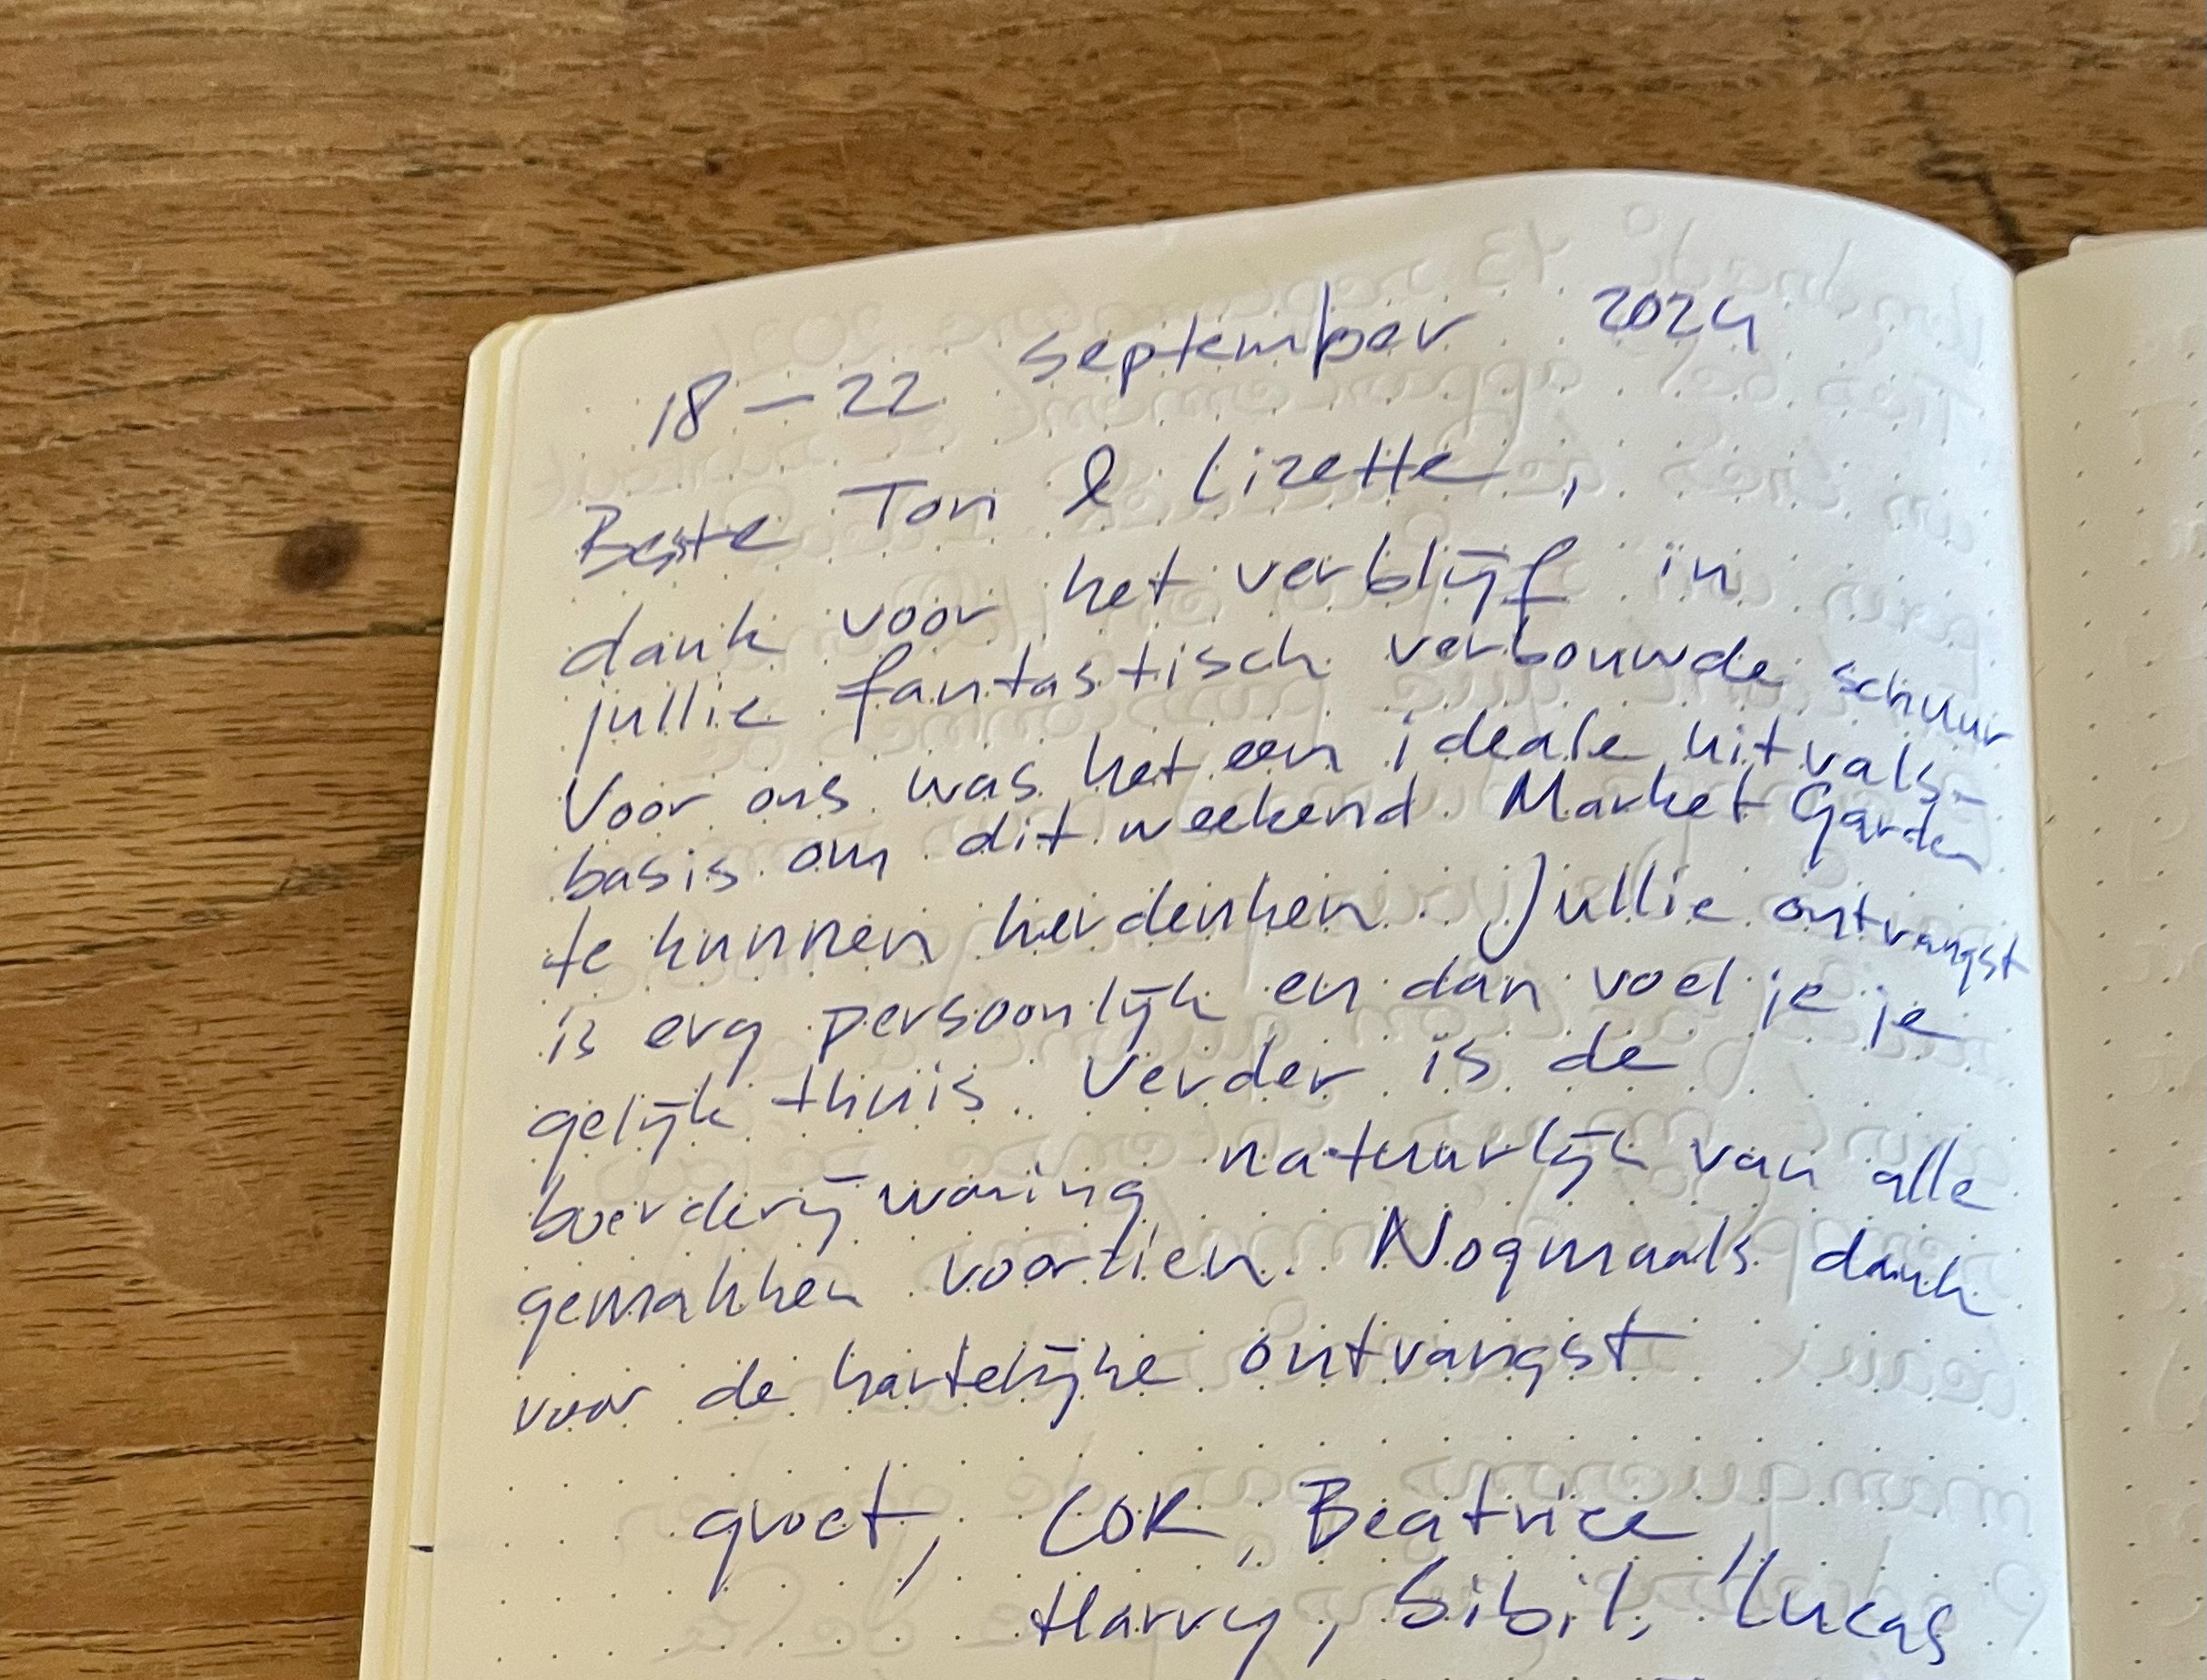 18 – 22 september 2024
Beste Ton & Lizette,
dank voor het verblijf in
jullie fantastisch verbouwde schuur
Voor ons was het een ideale uitvals-
basis om dit weekend Market Garden
te kunnen herdenken. Jullie ontvangst
is erg persoonlijk en dan voel je je
gelijk thuis. Verder is de
boerderijwoning natuurlijk van alle
gemakken voorzien. Nogmaals dank
voor de hartelijke ontvangst
groet, COR, Beatrice,
Harry, Sibil, Lucas